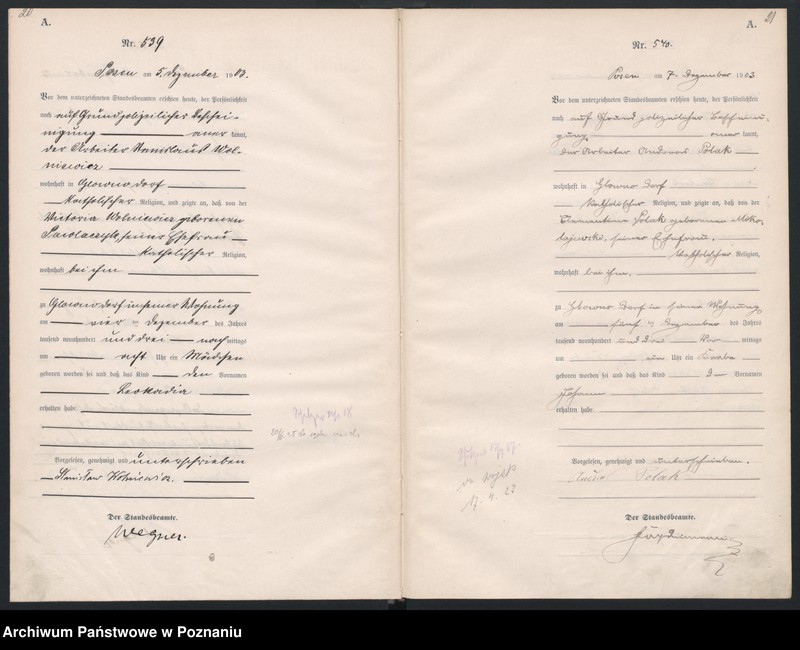 20
A.
Nr. 539
Posen am 5. Dezember 1903.
Vor dem unterzeichneten Standesbeamten erschien heute, der Persönlichkeit
nach auf Grund polizeilicher Beschei-
nigung anerkannt,
der Arbeiter Stanislaus Wol-
niewicz
wohnhaft in Glowno Dorf
katholischer Religion, und zeigte an, daß von der
Victoria Wolniewicz geborenen
seiner Ehefrau
katholischer Religion,
wohnhaft bei ihm
zu Glowno Dorf in seiner Wohnung
am vier ten Dezember des Jahres
tausend neunhundert und drei nachmittags
um acht Uhr ein Mädchen
geboren worden sei und daß das Kind den Vornamen
Leokadia
erhalten habe.
Vorgelesen, genehmigt und unterschrieben
Stanisław Wolniewicz.
Der Standesbeamte.
Wegner.
21
A.
Nr. 540.
Posen am 7. Dezember 1903
Vor dem unterzeichneten Standesbeamten erschien heute, der Persönlichkeit
nach auf Grund polizeilicher Bescheini-
gung anerkannt,
der Arbeiter Andreas Polak
wohnhaft in Glowno Dorf
katholischer Religion, und zeigte an, daß von der
Clementine Polak geborenen Miko-
lajewska, seiner Ehefrau,
katholischer Religion,
wohnhaft bei ihm.
zu Glowno Dorf in seiner Wohnung
am fünf ten Dezember des Jahres
tausend neunhundert und drei Vor mittags
um ein Uhr ein Knabe
geboren worden sei und daß das Kind den Vornamen
Johann
erhalten habe.
Vorgelesen, genehmigt und unterschrieben.
Polak
17. 4. 23
Der Standesbeamte.
Archiwum Państwowe w Poznaniu